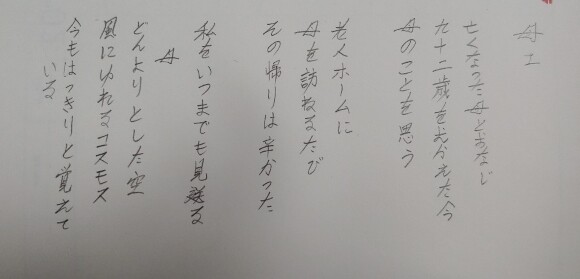 母 I
亡くなった母とおなじ
九十二歳をむかえた今
母のことを思う
老人ホームに
母を訪ねるたび
その帰りは辛かった
私をいつまでも見送る
母
どんよりとした空
風にゆれるコスモス
今もはっきりと覚えて
いる